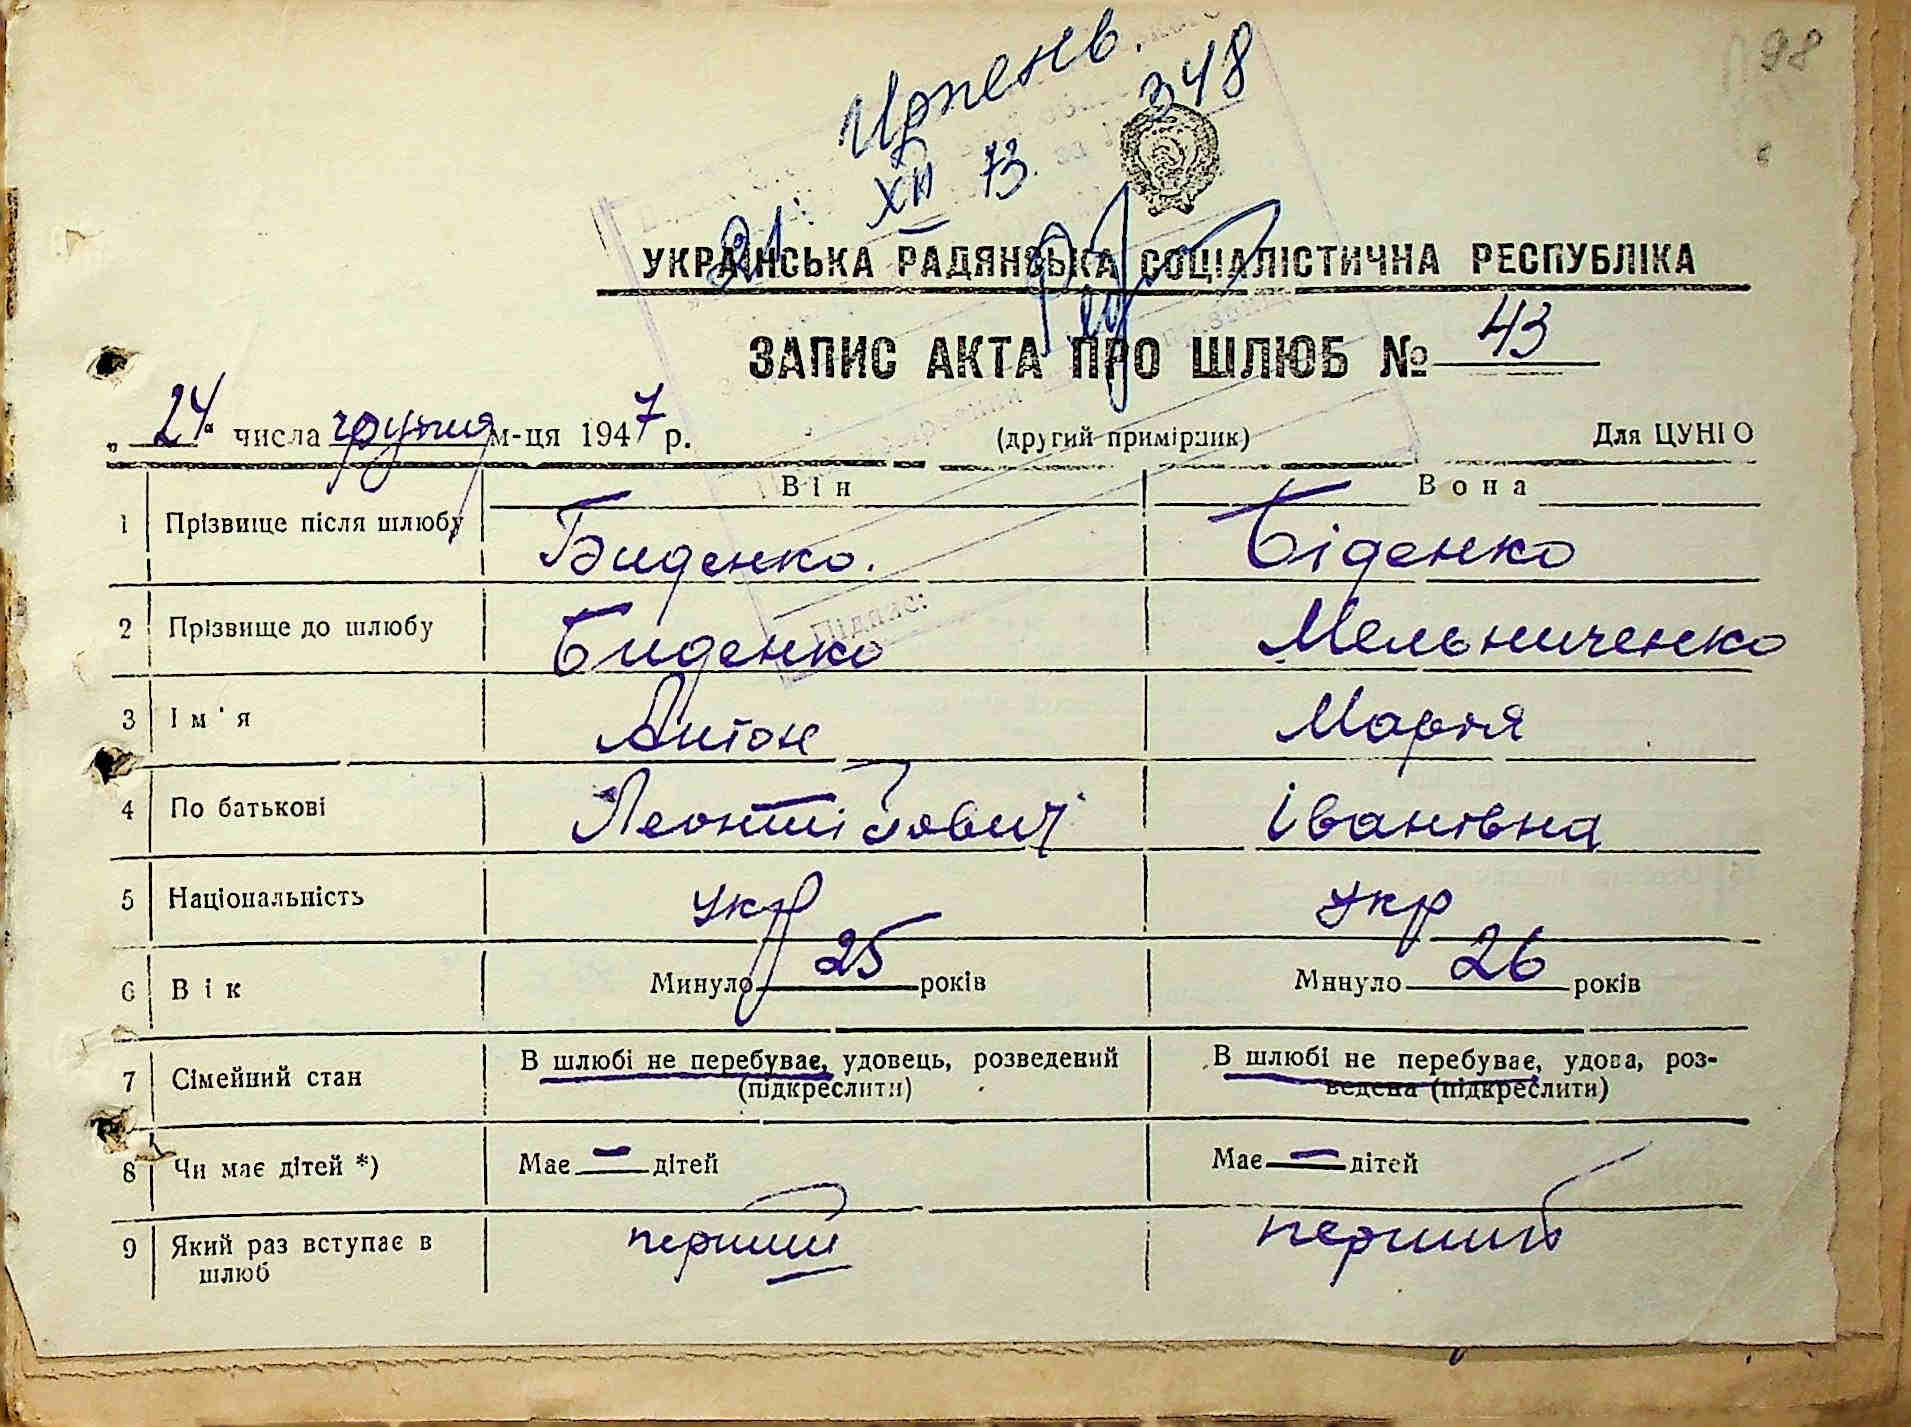 98
Ирпень.
348
XII 73.
21
УКРАЇНСЬКА РАДЯНСЬКА СОЦІАЛІСТИЧНА РЕСПУБЛІКА
ЗАПИС АКТА ПРО ШЛЮБ № 43
„24“ числа грудня м-ця 1947 р. (другий примірник) Для ЦУНГО
Він Вона
1 Прізвище після шлюбу Биденко. Біденко
2 Прізвище до шлюбу Биденко Мельниченко
Підпис:
3 Ім'я Антон Марія
4 По батькові Леонтійович Іванівна
5 Національність укр укр
6 Вік Минуло 25 років Минуло 26 років
7 Сімейний стан В шлюбі не перебуває, удовець, розведений В шлюбі не перебуває, удова, роз-
(підкреслити) ведена (підкреслити)
8 Чи має дітей *) Має — дітей Має — дітей
9 Який раз вступає в перший перший
шлюб